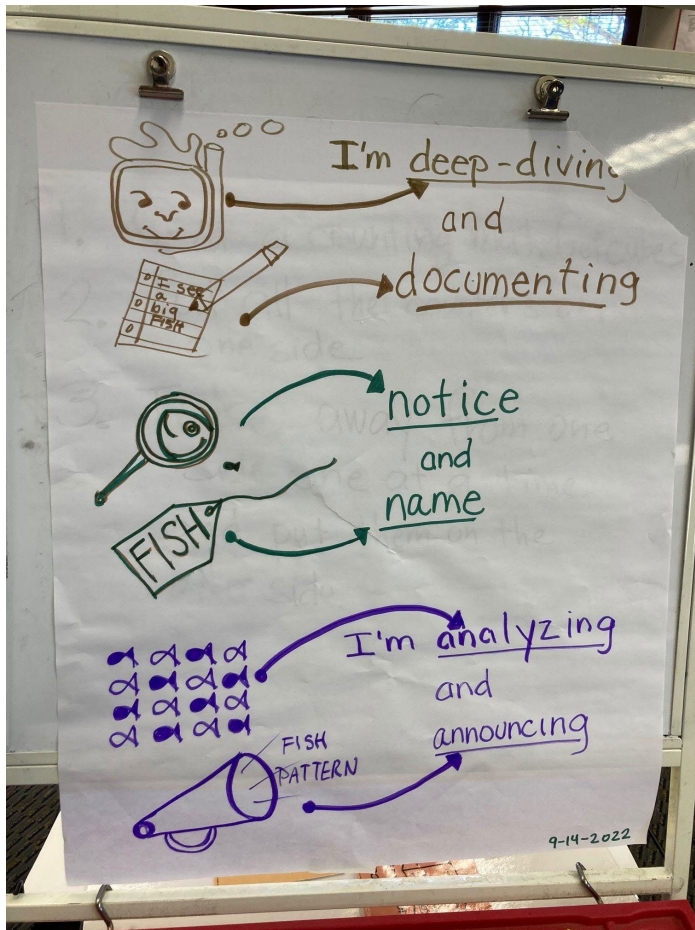 I'm deep-diving
and
documenting
I see
a
big
FISH
notice
and
name
FISH
I'm analyzing
and
announcing
FISH
PATTERN
9-14-2022